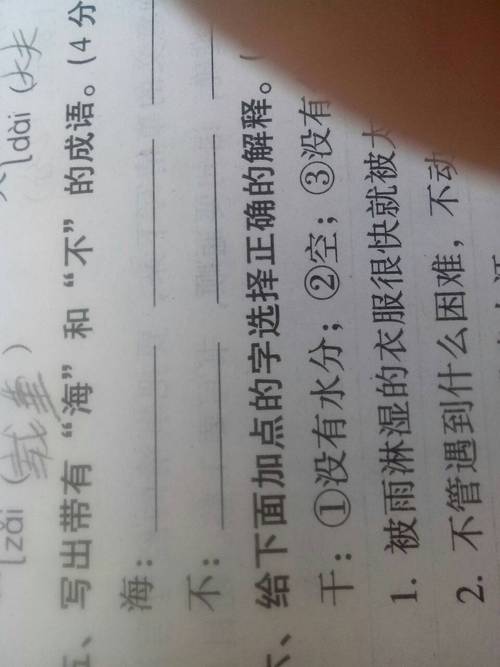 [dài (大夫
[zǎi (载重)
五、写出带有“海”和“不”的成语。(4分
海：
不：
六、给下面加点的字选择正确的解释。(
干：①没有水分；②空；③没有
1. 被雨淋湿的衣服很快就被太
2. 不管遇到什么困难，不动